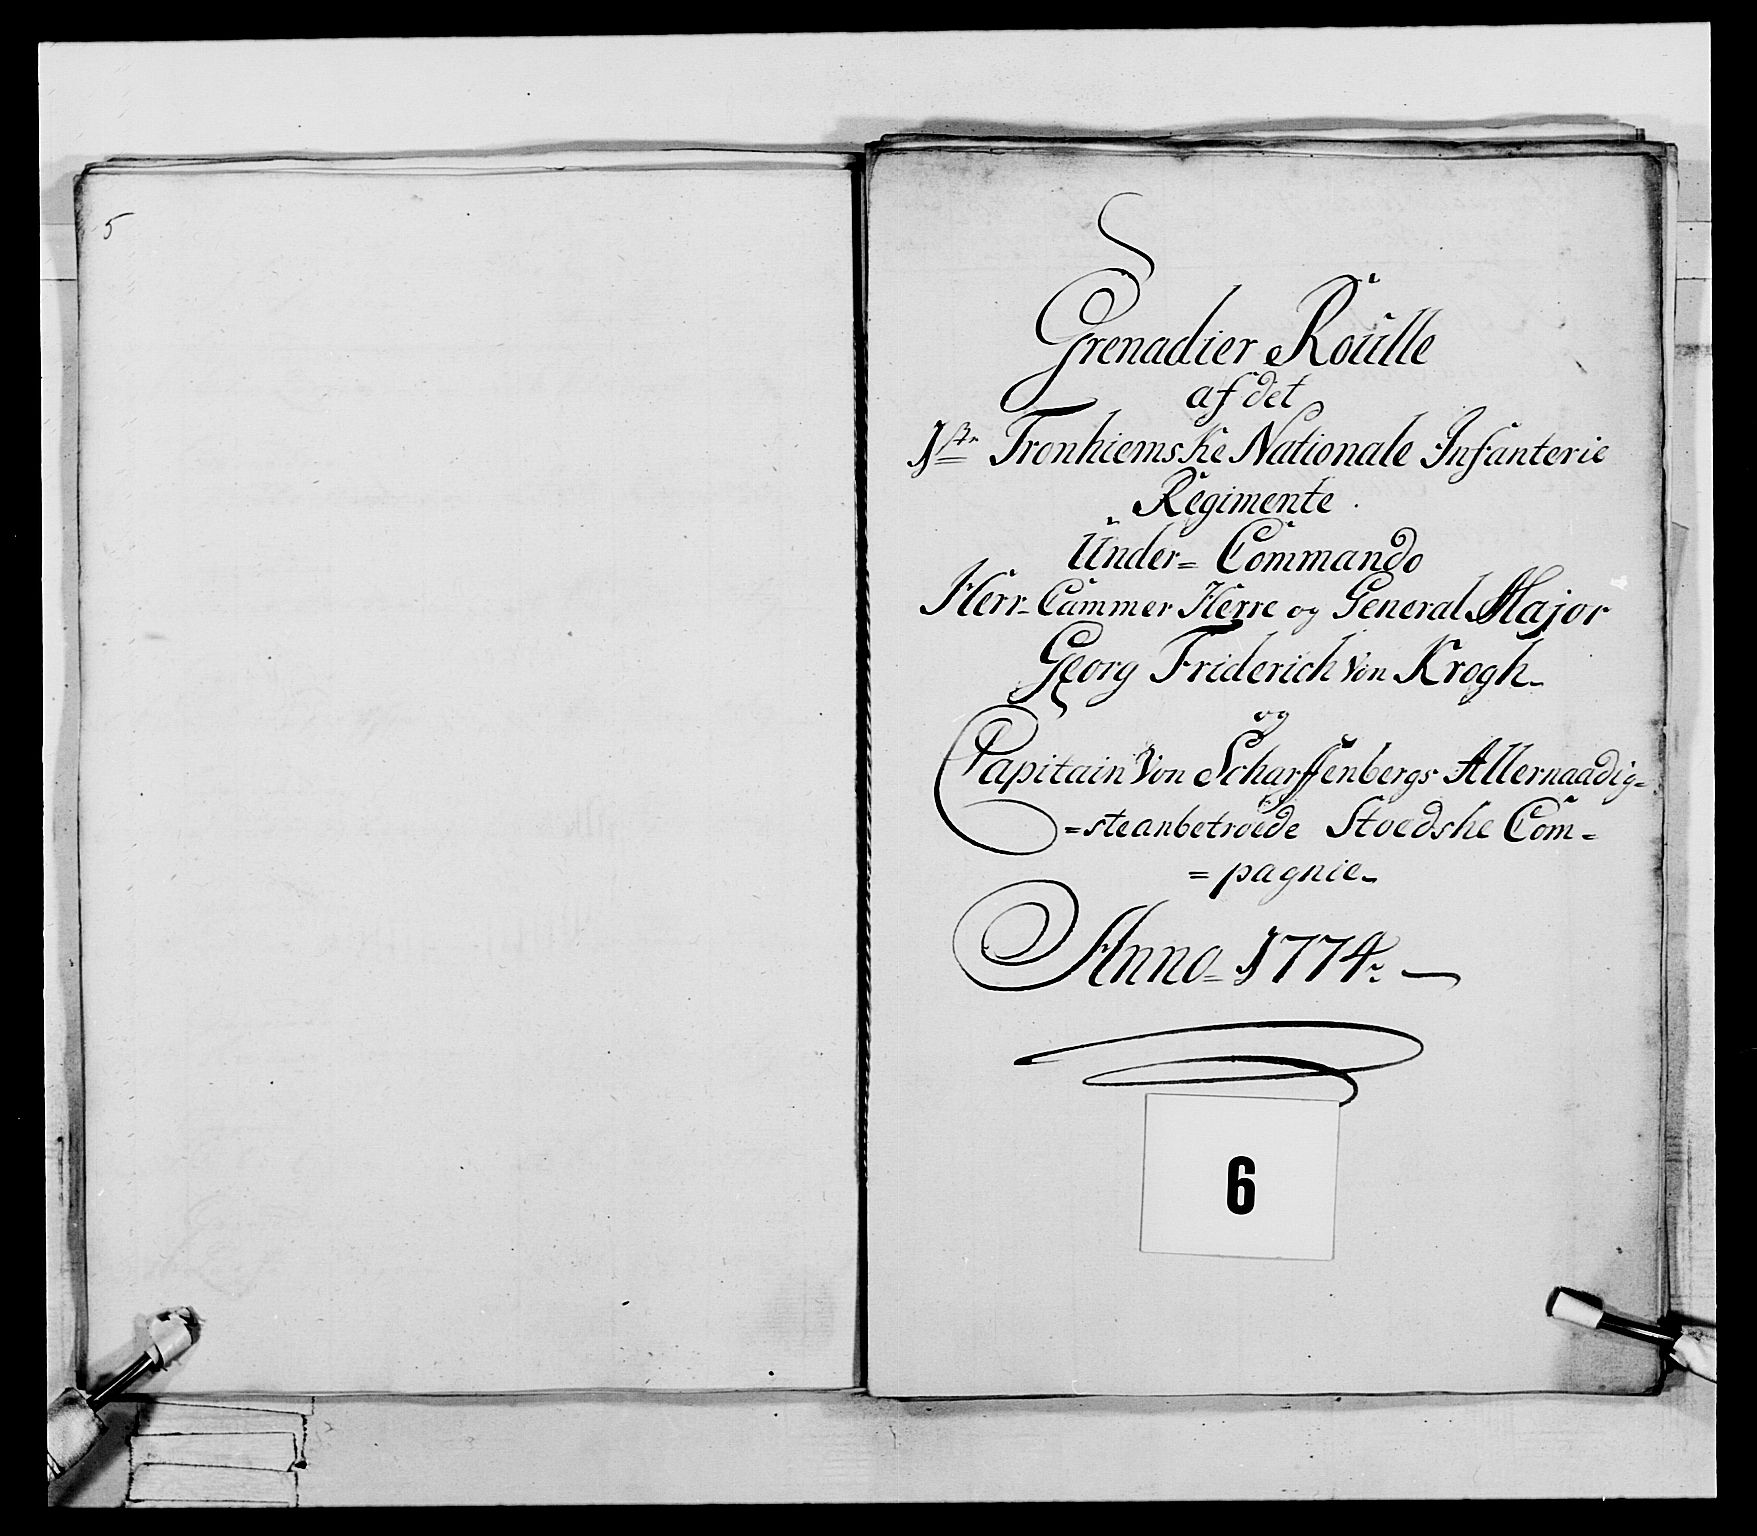 5
Grenadier Roülle
af det
1ste Tronhiemske Nationale Infanterie
Regimente.
Ünder= Commando
Herr= Cammer Herre og General Major
Georg Friderich von Krogh
og
Capitain von Scharffenbergs Allernaadig=
=ste anbetroede Stoedske Com=
=pagnie
Anno= 1774
6